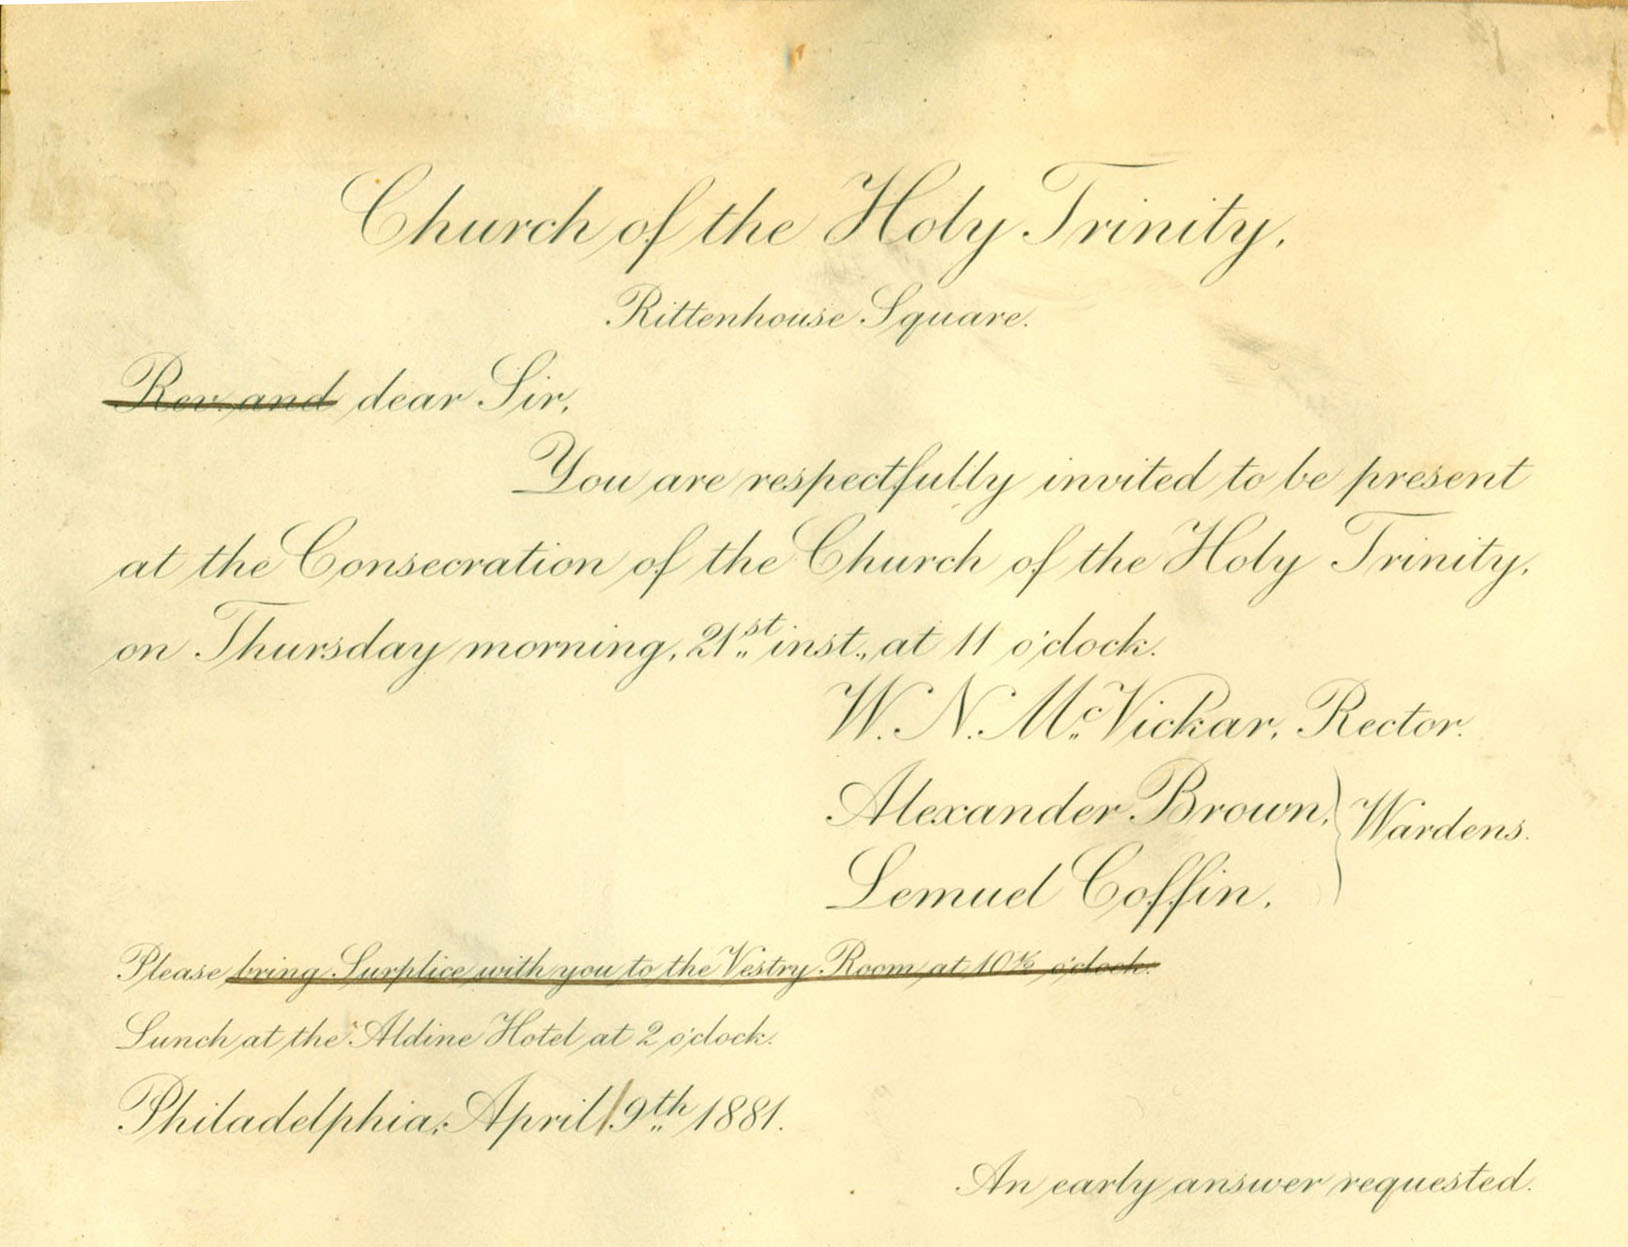 Church of the Holy Trinity,
Rittenhouse Square.
Rev. and dear Sir,
You are respectfully invited to be present
at the Consecration of the Church of the Holy Trinity,
on Thursday morning, 21st inst., at 11 o'clock.
W. N. McVickar, Rector.
Alexander Brown, } Wardens.
Lemuel Coffin.
Please bring Surplice with you to the Vestry Room at 10½ o'clock.
Lunch at the Aldine Hotel at 2 o'clock.
Philadelphia, April 19th 1881.
An early answer requested.